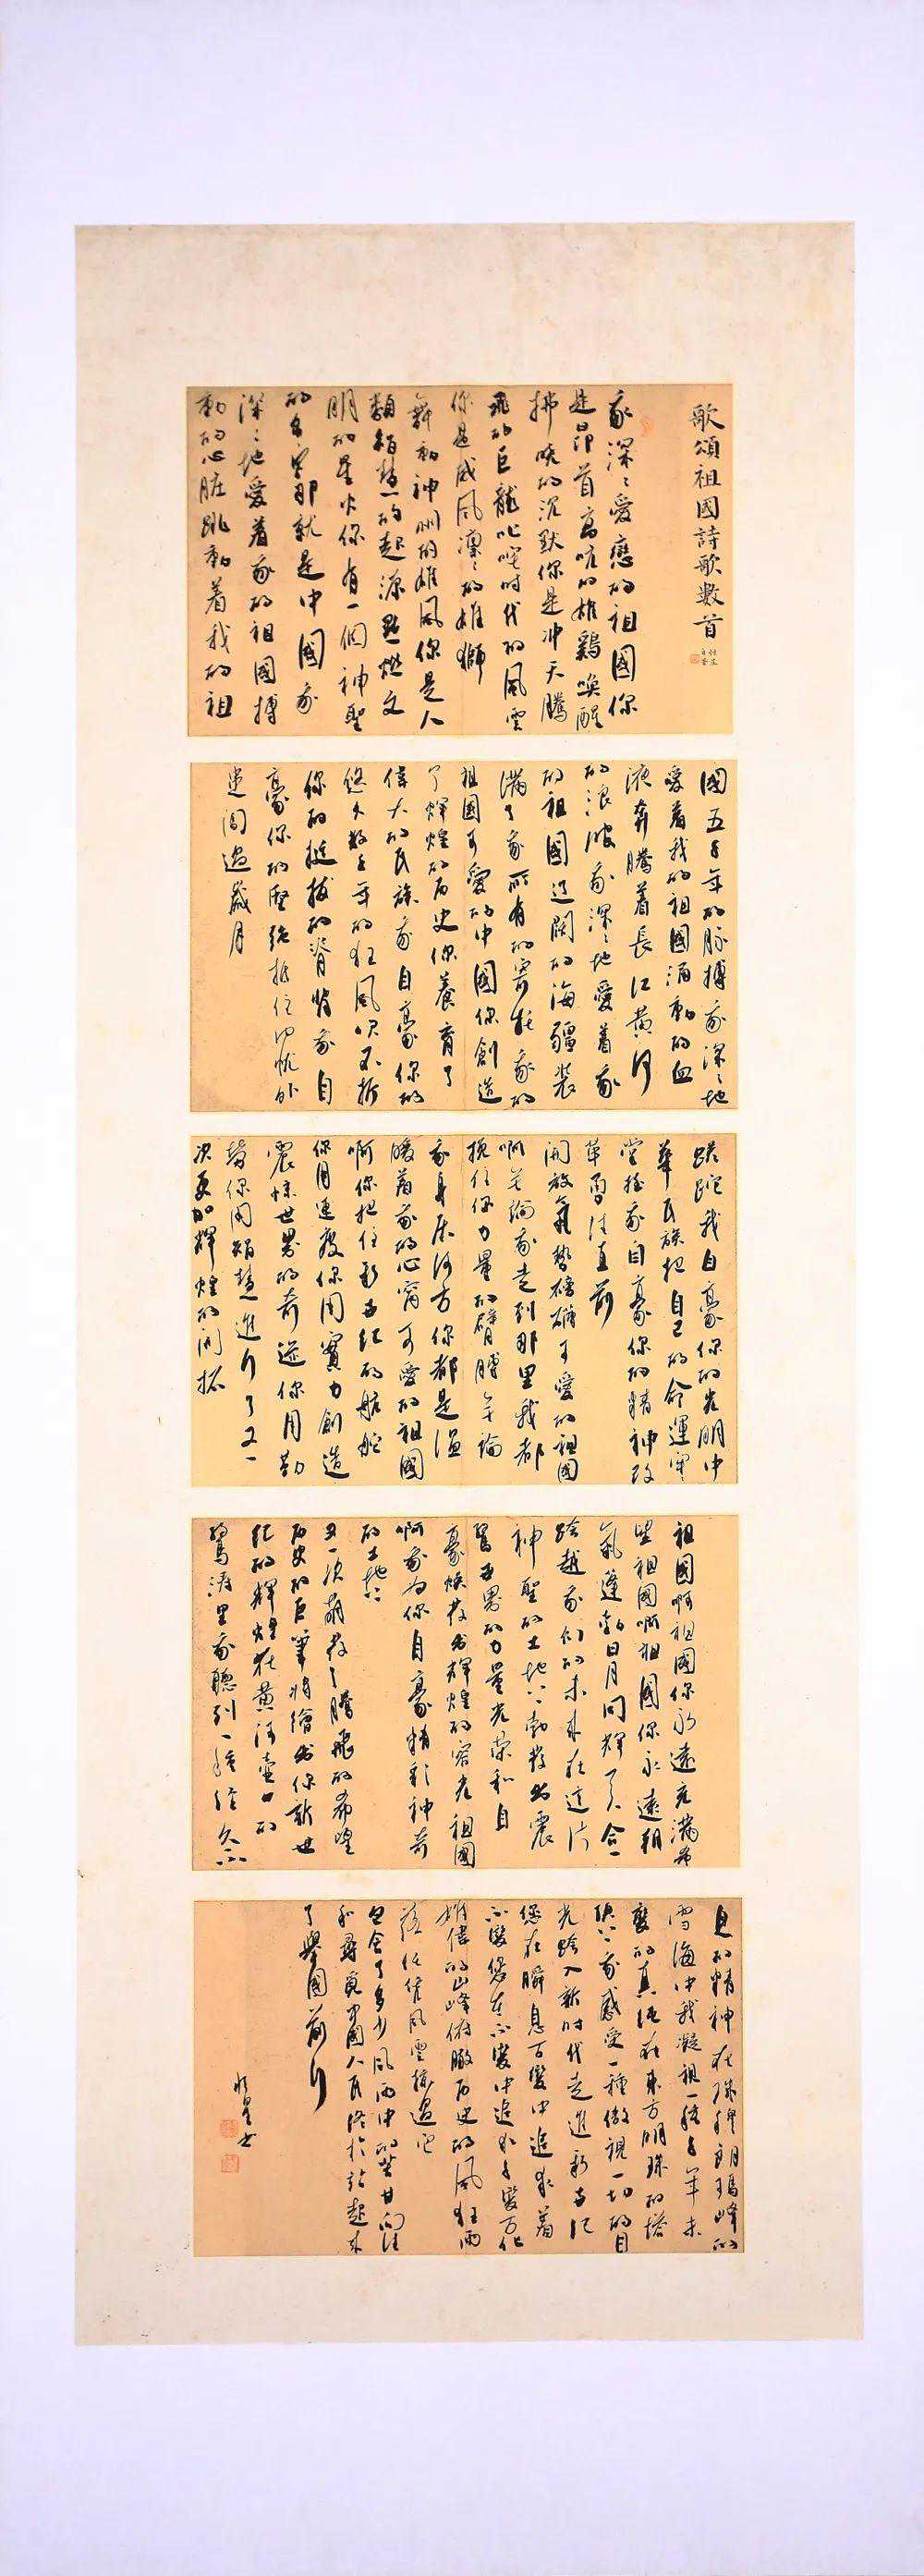 歌頌祖國詩歌数首
我深深愛戀的祖國你
是昂首高吭的雄鷄喚醒
拂晓的沉默你是冲天騰
飛的巨龍叱咤时代的風雲
你是威風凛凛的雄獅
舞動神州的雄風你是人
類智慧的起源點燃文
明的星火你有一個神聖
的名字那就是中國我
深深地愛着我的祖國搏
動的心脏跳動着我的祖
國五千年的脉搏我深深地
愛着我的祖國涌動的血
液奔騰着長江黄河
的浪波我深深地愛着我
的祖國遼闊的海疆装
满了我所有的寄托我的
祖國可愛的中國你創造
了輝煌的历史你養育了
偉大的民族我自豪你的
悠久数千年的狂風吹不折
你的挺拔的脊背我自
豪你的堅強抵住内忧外
患闯過歲月
蹉跎我自豪你的光明中
華民族把自己的命運牢
掌握我自豪你的精神改
革勇往直前
開放氣勢磅礴可愛的祖國
啊无論我走到那里我都
挽住你力量的臂膊无論
我身居何方你都是温
暖着我的心窝可愛的祖國
啊你把住新世纪的航舵
你用速度你用實力創造
震惊世界的奇迹你用勤
勞你用智慧進行了又一
次更加輝煌的開拓
祖國啊祖國你永遠充满希
望祖國啊祖國你永遠朝
氣蓬勃日月同輝天人合一
跨越我们的未来在這片
神聖的土地上勃發出震
驚世界的力量光荣和自
豪焕發出輝煌的容光祖國
啊我为你自豪精彩神奇
的土地上
又一次萌發了騰飛的希望
历史的巨筆将繪出你新世
纪的輝煌在黄河壶口的
驚涛里我聽到一種经久不
息的精神在珠穆朗瑪峰的
雪海中我凝視一種千年未
變的真誠在東方明珠的塔
頂上我感受一種傲視一切的目
光跨入新时代走進新世纪
您在瞬息百變中追求着
不變您在不變中追求千變万化
雄偉的山峰俯瞰历史的風狂雨
落任凭風雲掠過它
包含了多少風雨中的苦甘向往
和尋覓中國人民终於站起来
了舉國前行